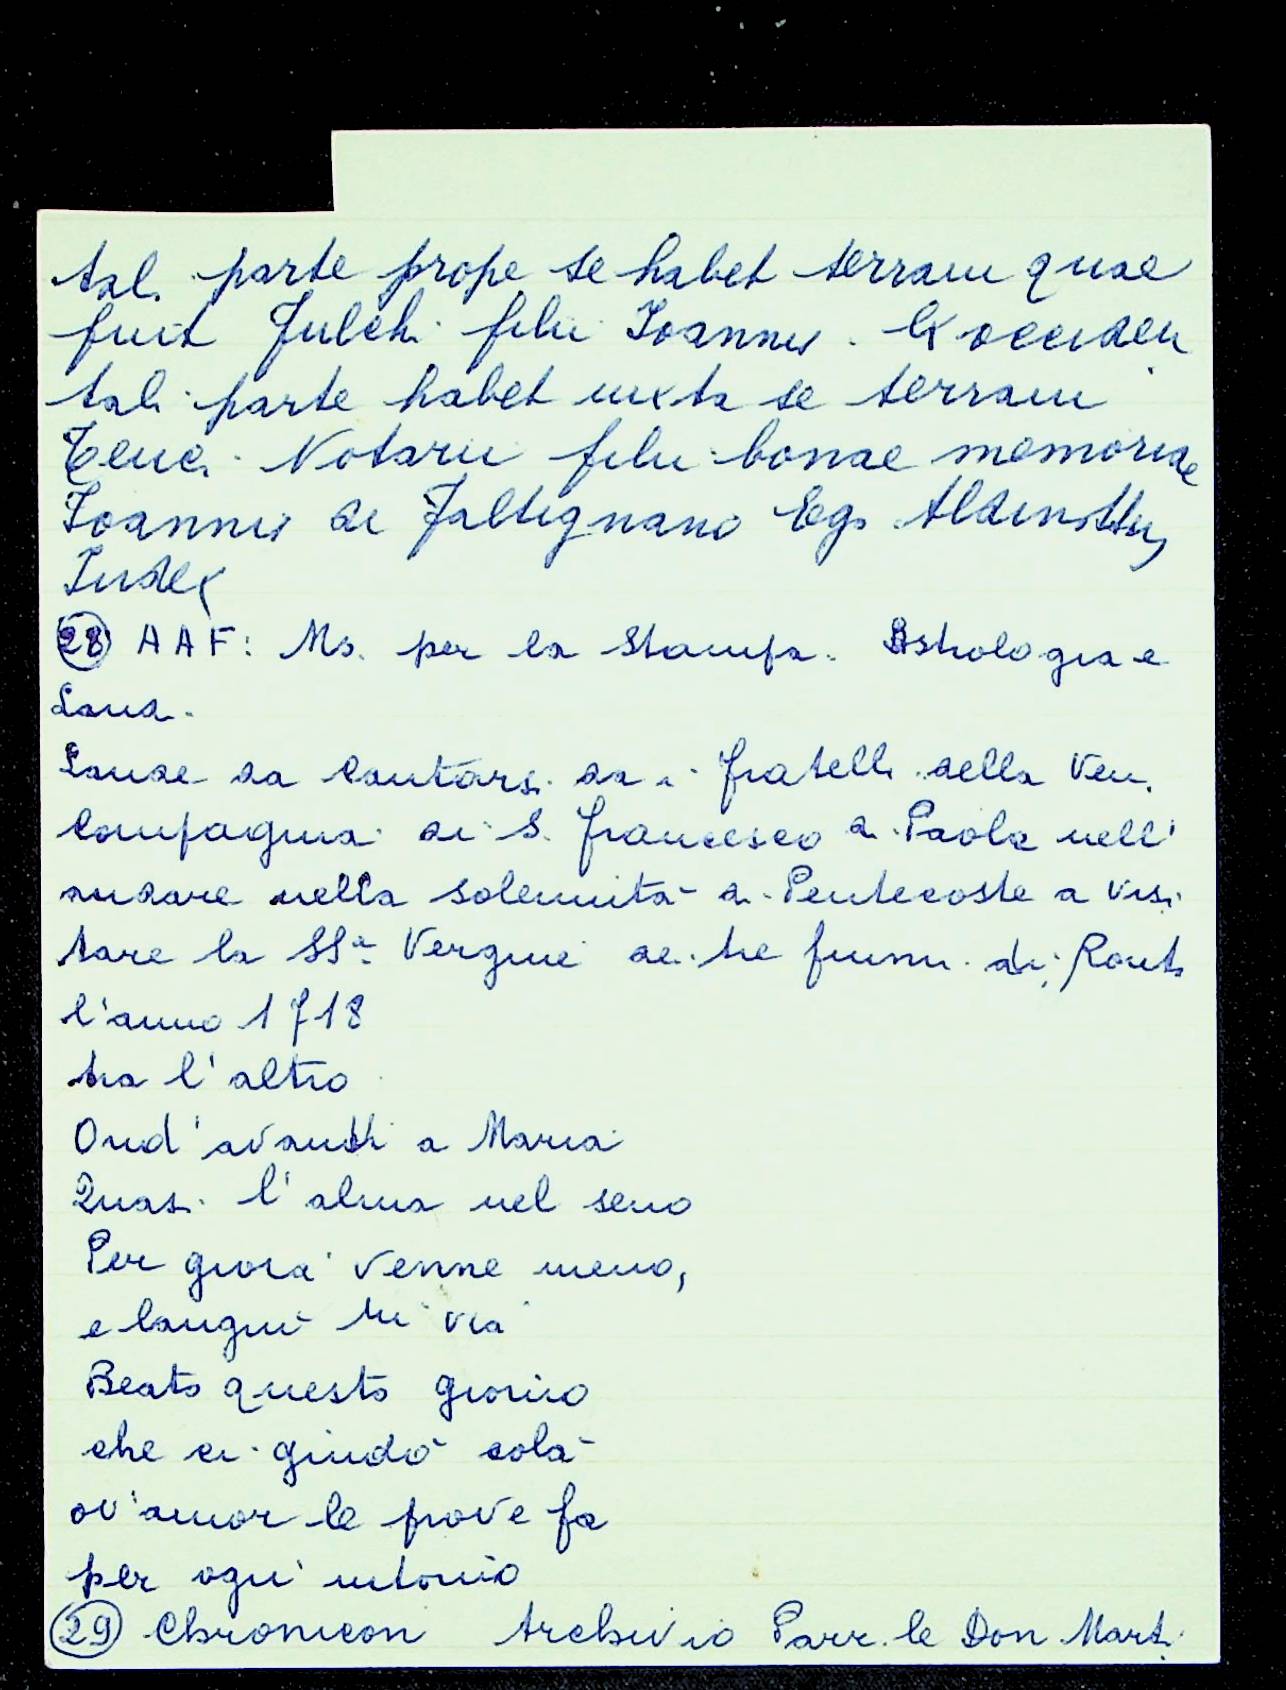 tali parte prope se habet terram quae
fuit filii Ioannis. Ex occiden
tali parte habet iuxta se terram
Notarii filii bonae memoriae
Ioannis de Faltignano Ego Aldinottus
Iudex
28 AAF: Ms. per la Stampa. Astrologia e
Laud.
Laude da cantarsi da i fratelli della Ven.
Compagnia di S. Francesco di Paola nell'
andare nella solennità di Pentecoste a visi
tare la SS.a Vergine de' tre fiumi di Ronta
l'anno 1718
tra l'altro
Ond'avanti a Maria
Quasi l'alma nel seno
Per gioia venne meno,
e languì tri via
Beato questo giorno
che ci guidò colà
ov'amor le prove fa
per ogni intorno
29 Chronicon Archivio Parr.le Don Mart.